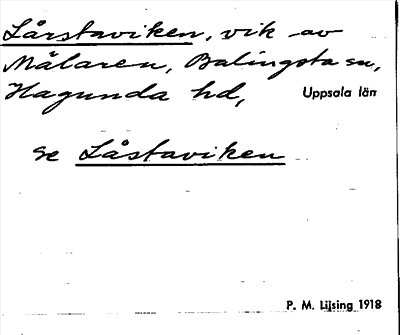 Lårstaviken, vik av
Mälaren, Balingsta sn,
Hagunda hd, Uppsala län
se Låstaviken
P. M. Liljsing 1918